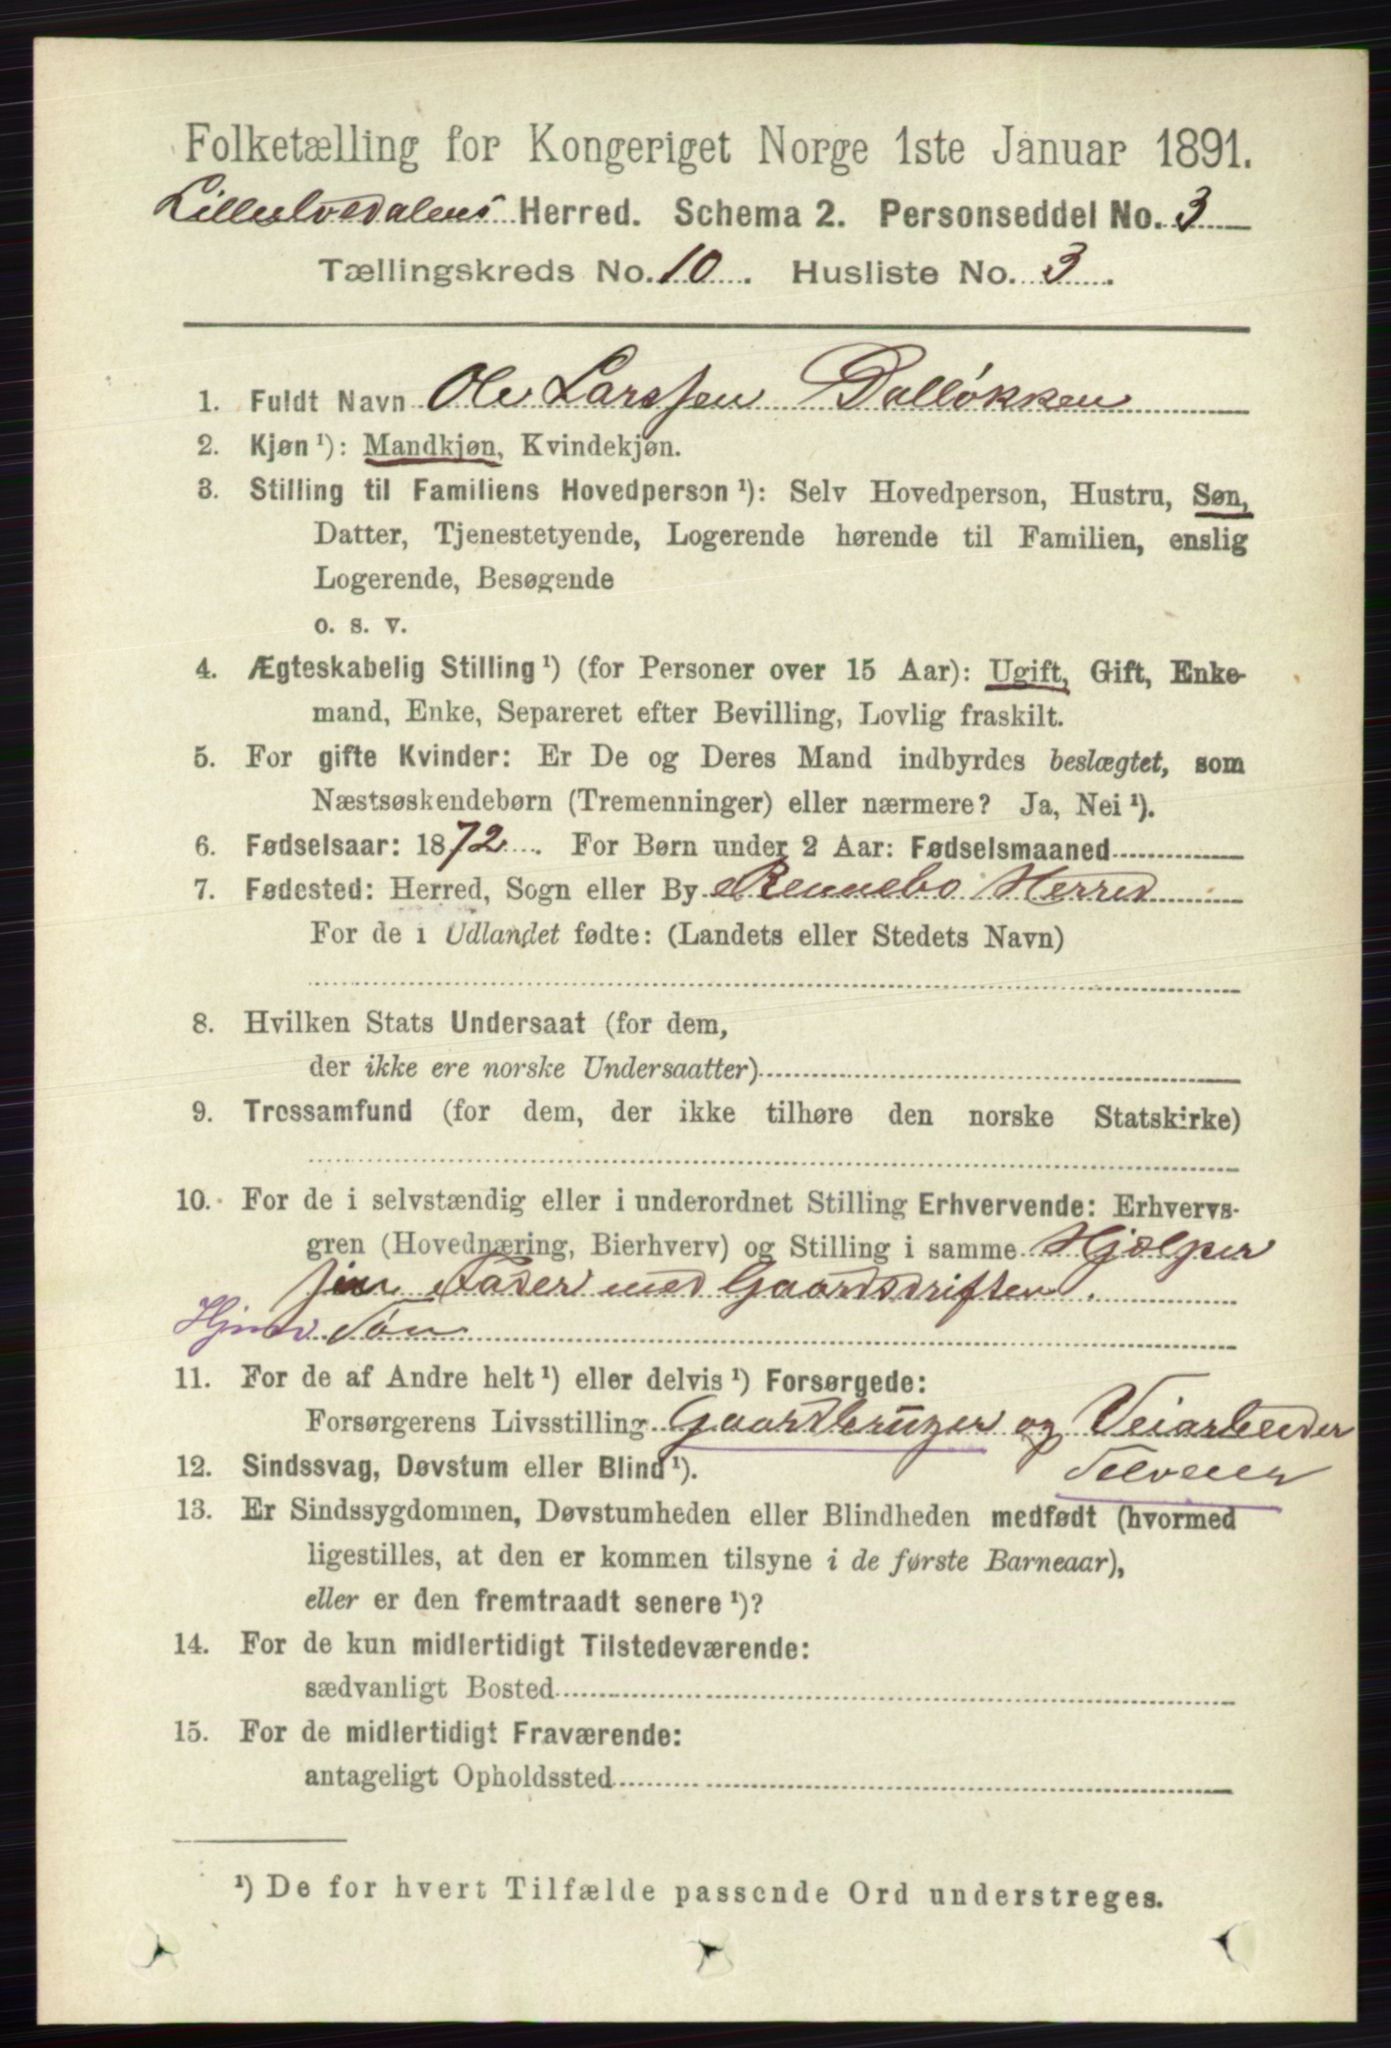 Folketælling for Kongeriget Norge 1ste Januar 1891.
Lilleelvedalens Herred. Schema 2. Personseddel No. 3
Tællingskreds No. 10. Husliste No. 3.
1. Fuldt Navn Ole Larssen Dalløkken
2. Kjøn ¹): Mandkjøn, Kvindekjøn.
3. Stilling til Familiens Hovedperson ¹): Selv Hovedperson, Hustru, Søn,
Datter, Tjenestetyende, Logerende hørende til Familien, enslig
Logerende, Besøgende
o. s. v.
4. Ægteskabelig Stilling ¹) (for Personer over 15 Aar): Ugift, Gift, Enke-
mand, Enke, Separeret efter Bevilling, Lovlig fraskilt.
5. For gifte Kvinder: Er De og Deres Mand indbyrdes beslægtet, som
Næstsøskendebørn (Tremenninger) eller nærmere? Ja, Nei ¹).
6. Fødselsaar: 1872. For Børn under 2 Aar: Fødselsmaaned
7. Fødested: Herred, Sogn eller By Rennebo Herred
For de i Udlandet fødte: (Landets eller Stedets Navn)
8. Hvilken Stats Undersaat (for dem,
der ikke ere norske Undersaatter)
9. Trossamfund (for dem, der ikke tilhøre den norske Statskirke)
10. For de i selvstændig eller i underordnet Stilling Erhvervende: Erhvervs-
gren (Hovednæring, Bierhverv) og Stilling i samme Hjælper
sin Fader med Gaardsdriften.
Søn
11. For de af Andre helt ¹) eller delvis ¹) Forsørgede:
Forsørgerens Livsstilling Gaardbruger og Veiarbeider
12. Sindssvag, Døvstum eller Blind ¹). Selveier
13. Er Sindssygdommen, Døvstumheden eller Blindheden medfødt (hvormed
ligestilles, at den er kommen tilsyne i de første Barneaar),
eller er den fremtraadt senere ¹)?
14. For de kun midlertidigt Tilstedeværende:
sædvanligt Bosted
15. For de midlertidigt Fraværende:
antageligt Opholdssted
¹) De for hvert Tilfælde passende Ord understreges.